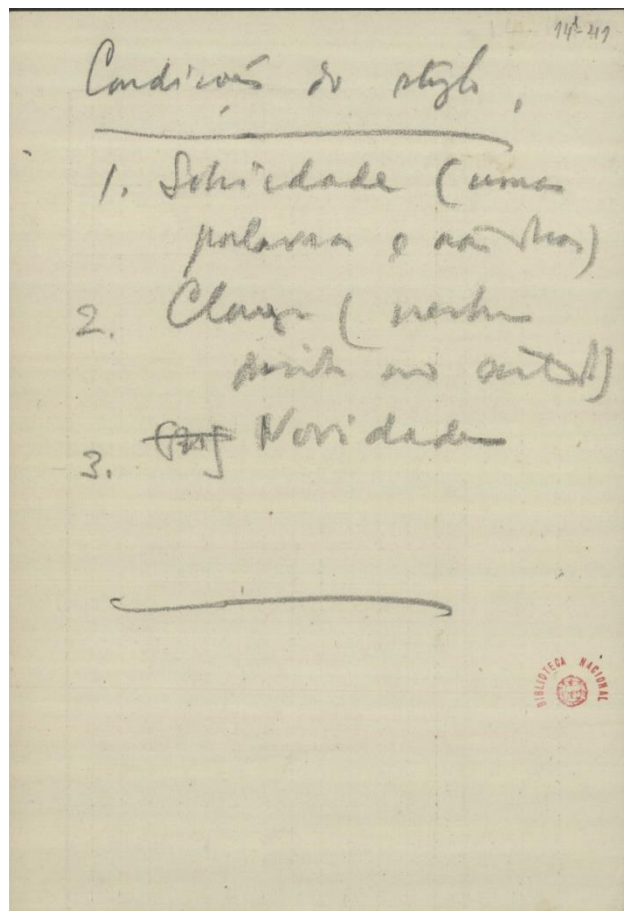 14D-41
Condições do stylo.
1. Sobriedade (umas
palavras e não outras)
2. Clareza (
3. Orig Novidade
BIBLIOTECA NACIONAL